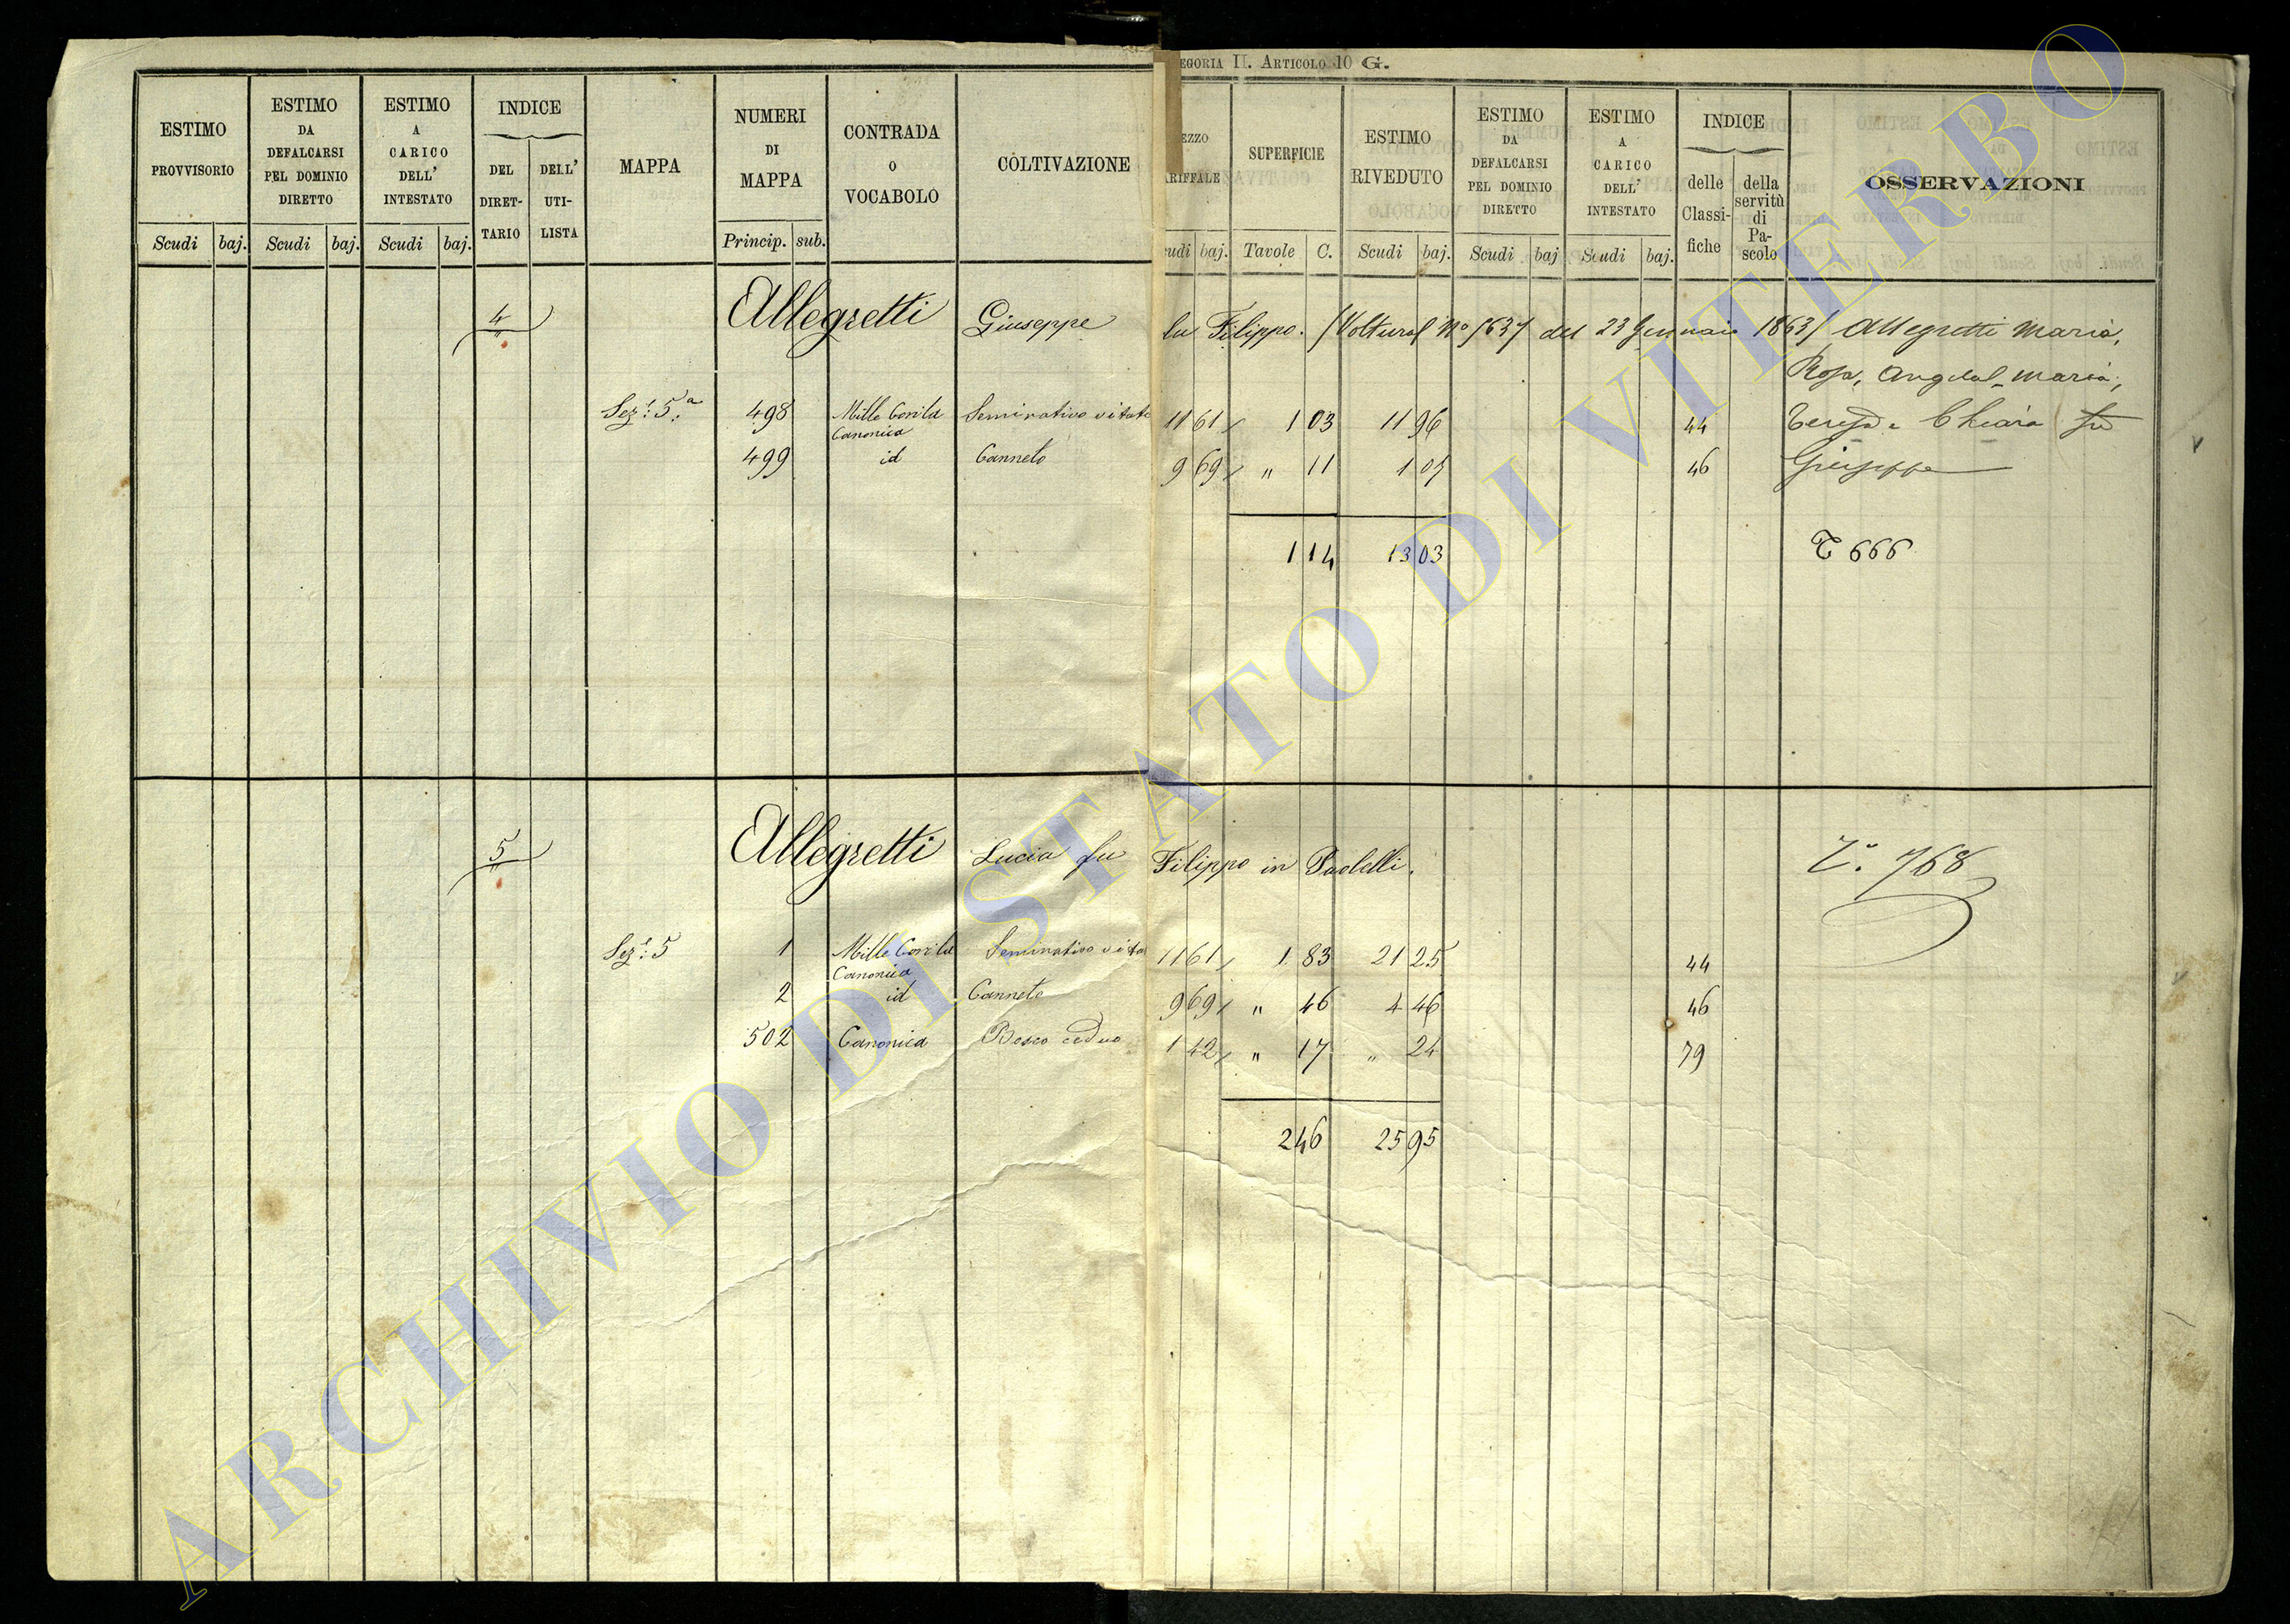 EGORIA II. ARTICOLO 10 G.
ESTIMO PROVVISORIO
ESTIMO DA DEFALCARSI PEL DOMINIO DIRETTO
ESTIMO A CARICO DELL' INTESTATO
INDICE
DEL DIRET-TARIO
DELL' UTI-LISTA
MAPPA
NUMERI DI MAPPA
CONTRADA O VOCABOLO
COLTIVAZIONE
EZZO RIFFALE
SUPERFICIE
ESTIMO RIVEDUTO
ESTIMO DA DEFALCARSI PEL DOMINIO DIRETTO
ESTIMO A CARICO DELL' INTESTATO
INDICE
delle Classi-fiche
della servitù di Pa-scolo
OSSERVAZIONI
Scudi baj. Scudi baj. Scudi baj. Princip. sub. udi baj. Tavole C. Scudi baj. Scudi baj Scudi baj.
4 Allegretti Giuseppe fu Filippo. (Voltura N° del 23 Gennaio 1863) Allegretti Maria,
Rosa, Angela Maria,
Sez: 5ª 498 Mille Canonica Seminativo vitato 11 61 1 03 11 96 44 Teresa e Chiara fu
499 id Canneto 9 69 " 11 1 07 46 Giuseppe
1 14 13 03 T 666
5 Allegretti Lucia fu Filippo in Paolelli. T. 768
Sez: 5 1 Mille Canonica Seminativo vitato 11 61 1 83 21 25 44
2 id Canneto 9 69 " 46 4 46 46
502 Canonica Bosco ceduo 1 42 " 17 " 24 79
2 46 25 95
ARCHIVIO DI STATO DI VITERBO